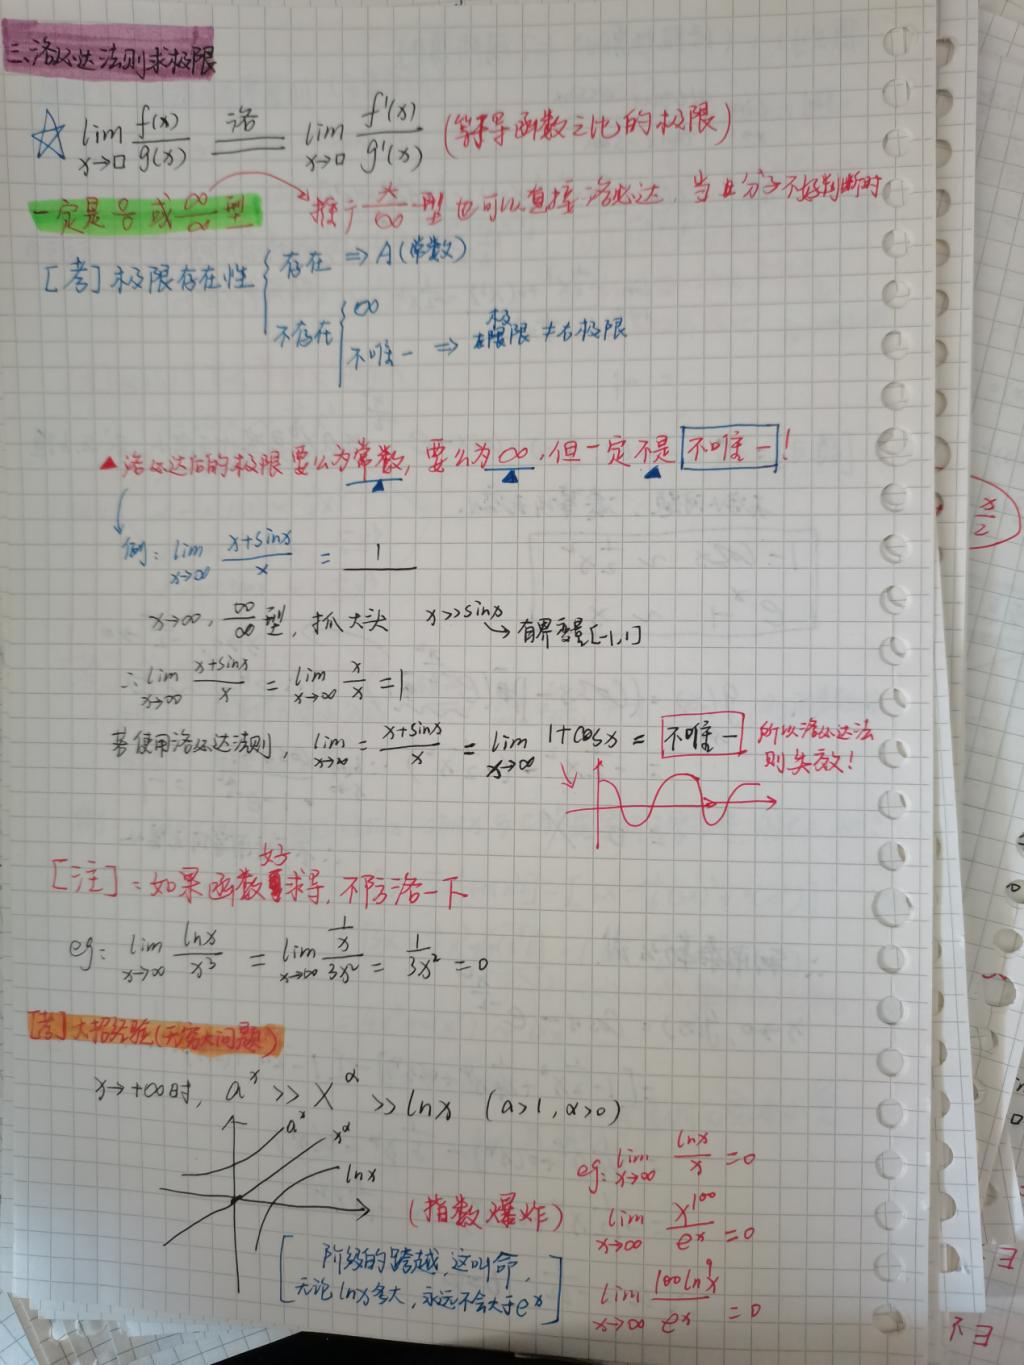 三、洛必达法则求极限
☆ lim x→□ f(x)/g(x) 洛 = lim x→□ f'(x)/g'(x) (等于导函数之比的极限)
一定是 0/0 或 ∞/∞ 型 推广 */∞ 型也可以直接洛必达,当且分子不好判断时
[考] 极限存在性 { 存在 ⇒ A(常数)
不存在 { ∞
不唯一 ⇒ 左极限 ≠ 右极限
▲ 洛必达后的极限要么为常数,要么为∞,但一定不是 不唯一!
例: lim x→∞ (x+sinx)/x = 1
x→∞, ∞/∞ 型, 抓大头 x>>sinx → 有界变量[-1,1]
∴ lim x→∞ (x+sinx)/x = lim x→∞ x/x = 1
若使用洛必达法则, lim x→∞ = (x+sinx)/x = lim x→∞ 1+cosx = 不唯一 所以洛必达法
则失效!
[注]: 如果函数好求导, 不防洛一下
eg: lim x→∞ lnx/x³ = lim x→∞ (1/x)/3x² = 1/3x² = 0
[考] 大招经验(无穷大问题)
x→+∞时, aˣ >> X^α >> lnx (a>1, α>0)
aˣ
x^α
lnx
(指数爆炸)
[ 阶级的跨越,这叫命,
无论lnx多大,永远不会大于eˣ ]
eg: lim x→∞ lnx/x = 0
lim x→∞ x¹⁰⁰/eˣ = 0
lim x→∞ 100ln⁹x/eˣ = 0
x/2